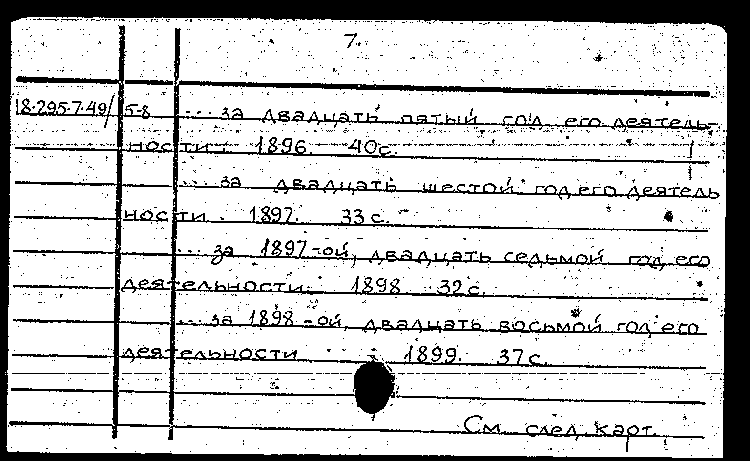 7.
18.295.7.49/ 5-8 ... за двадцать пятый год его деятель-
ности. 1896. 40с.
... за двадцать шестой год его деятель
ности. 1897. 33с.
... за 1897-ой, двадцать седьмой год его
деятельности. 1898. 32с.
... за 1898-ой, двадцать восьмой год его
деятельности. 1899. 37с.
См. след. карт.